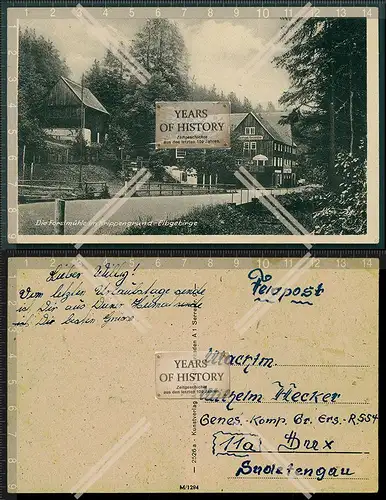 0 1 2 3 4 5 6 7 8 9 10 11 12 13 14
YEARS OF HISTORY
Zeitgeschichte
aus den letzten 100 Jahren
Die Forstmühle im Krippengrund - Elbgebirge
0 1 2 3 4 5 6 7 8 9 10 11 12 13 14
Lieber Willig!
Vom letzten Urlaubstage sende
ich Dir aus Deiner Heimat
Dir die besten Grüße
Feldpost
YEARS OF HISTORY
Zeitgeschichte
aus den letzten 100 Jahren
Wilhelm Hecker
Genes.-Komp. Gr. Ers.-R. 554
(11a) Brüx
Sudetengau
2526a Kunstverlag
M/1294